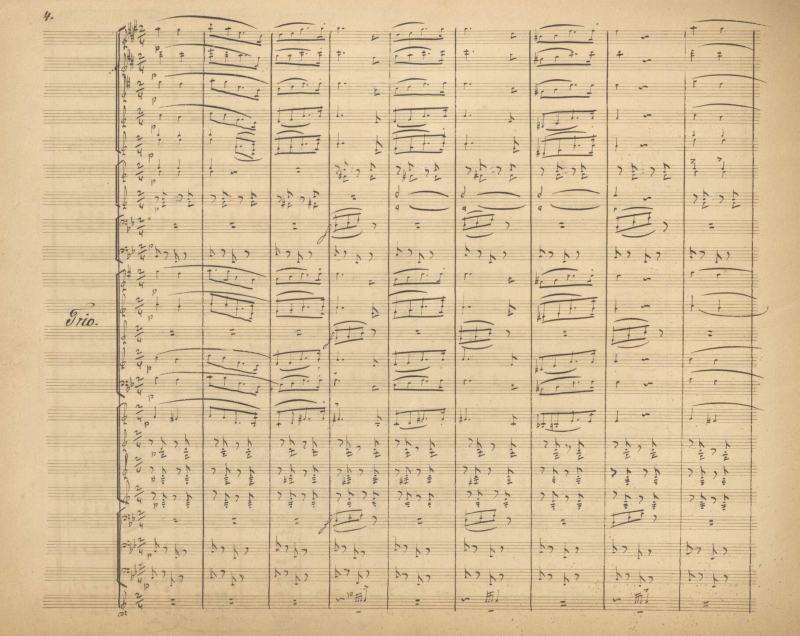 4.
Trio.